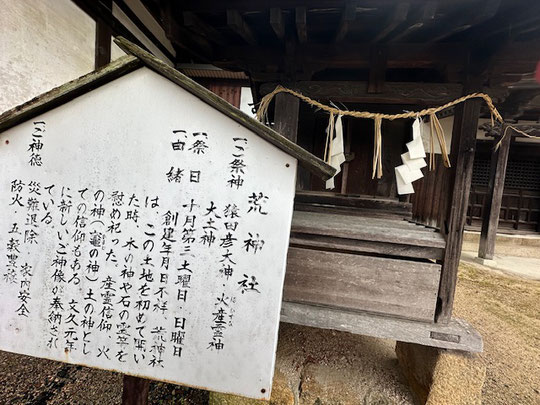 荒神社
一、ご祭神 猿田彦大神・火産霊神
ほむすび
大土神
一、祭日 十月第三土曜日・日曜日
一、由緒 創建年月日不祥。荒神社
は、この土地を初めて開い
た時、木の神や石の霊等を
慰め祀った。産霊信仰、火
の神（竈の神）土の神とし
ての信仰もある。文久元年
に新しいご神像が奉納され
ている。
一、ご神徳
災難退除・家内安全
防火・五穀豊穣